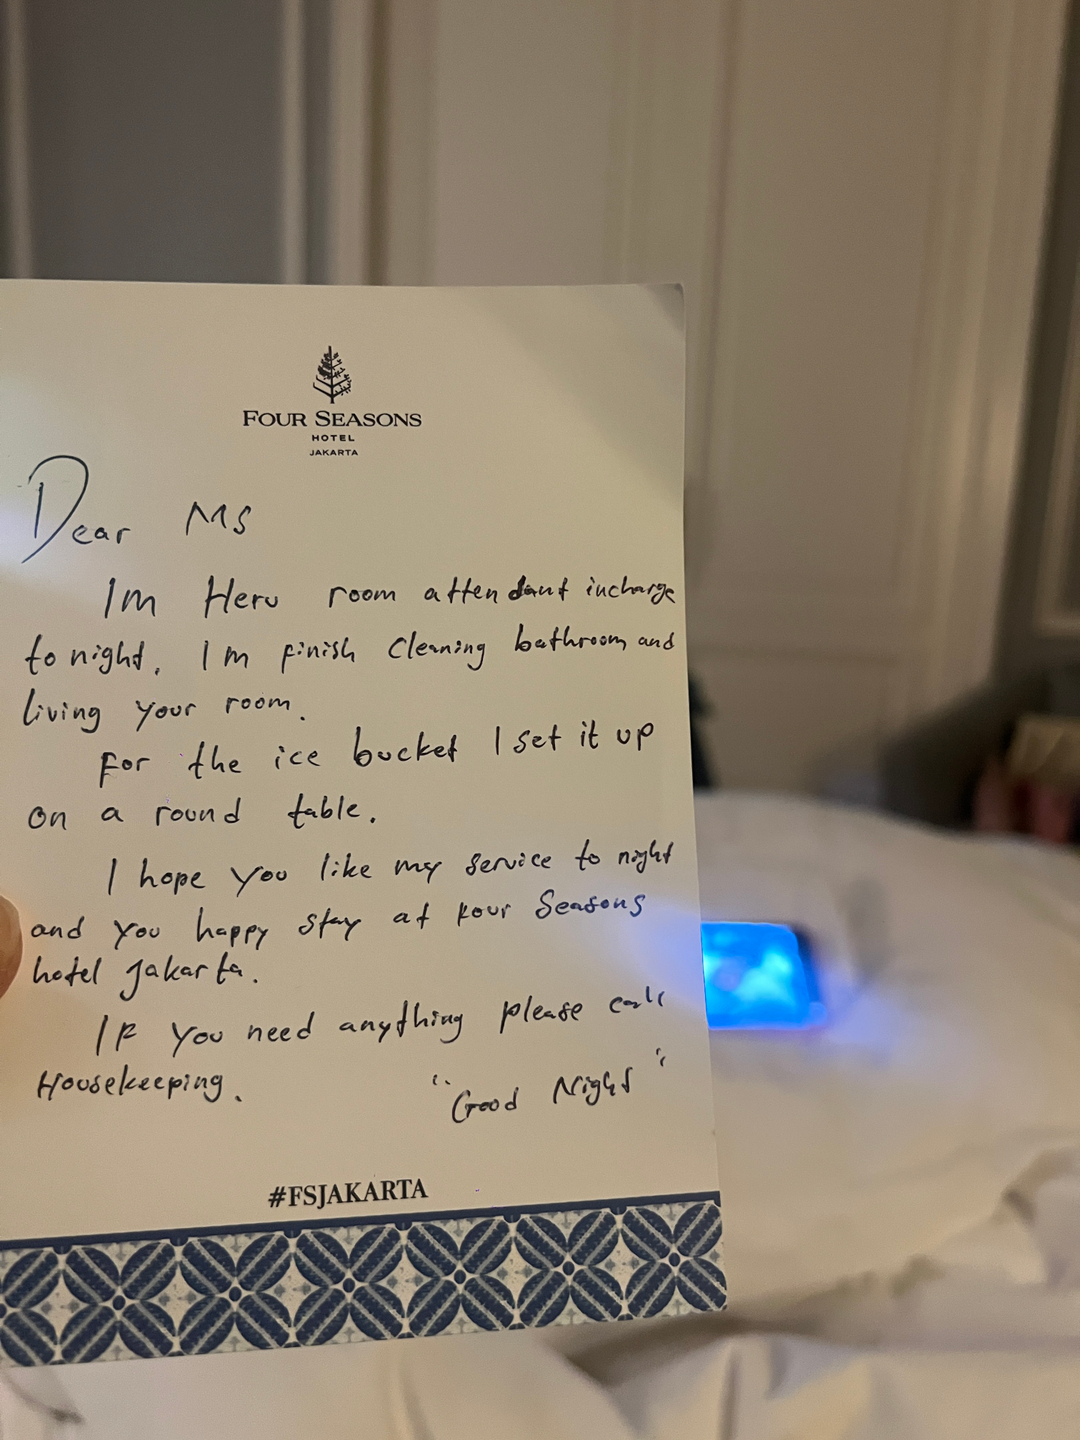 FOUR SEASONS
HOTEL
JAKARTA
Dear Ms
Im Heru room attendant incharge
to night. Im finish Cleaning bathroom and
living your room.
For the ice bucket I set it up
on a round table.
I hope you like my service to night
and you happy stay at Four Seasons
hotel Jakarta.
If you need anything please call
Housekeeping.
"Good Night"
#FSJAKARTA